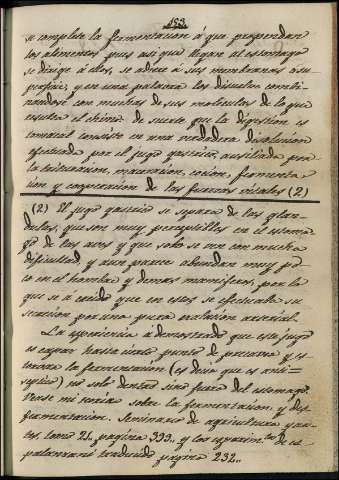 153.
se complete la fermentacion á que propendan
los alimentos pues asi que llegan al estomago
se dirige á ellos, se adiere á sus membranas ó su-
perficie, y en una palabra los disuelve combi-
nandose con muchas de sus moleculas de lo que
resulta el chimo de suerte que la digestion es-
tomacal consiste en una verdadera disolucion
efectuada por el jugo gastrico, ausiliada por
la trituracion, maceracion, cocion, fermenta-
cion y cooperacion de las fuerzas vitales (2)
(2) El jugo gastrico se separa de las glan-
dulas, que son muy perceptibles en el estoma-
go de las aves y que solo se ven con mucha
dificultad, y aun parece abundan muy po-
co en el hombre y demas mamiferos, por lo
que se á creido que en estos se efectuaba su
secrecion por una pura exalacion arterial.
La esperiencia á demostrado que este jugo
es capaz hasta cierto punto de precaver y es-
torvar la fermentacion (es decir que es anti=
septico) no solo dentro sino fuera del estomago.
Vease mi teoria sobre la fermentacion, y des-
fermentacion. Seminario de agricultura y ar-
tes, tomo 21., pagina 393., y los esperim.tos de Es-
palanzani traducido pagina 232..